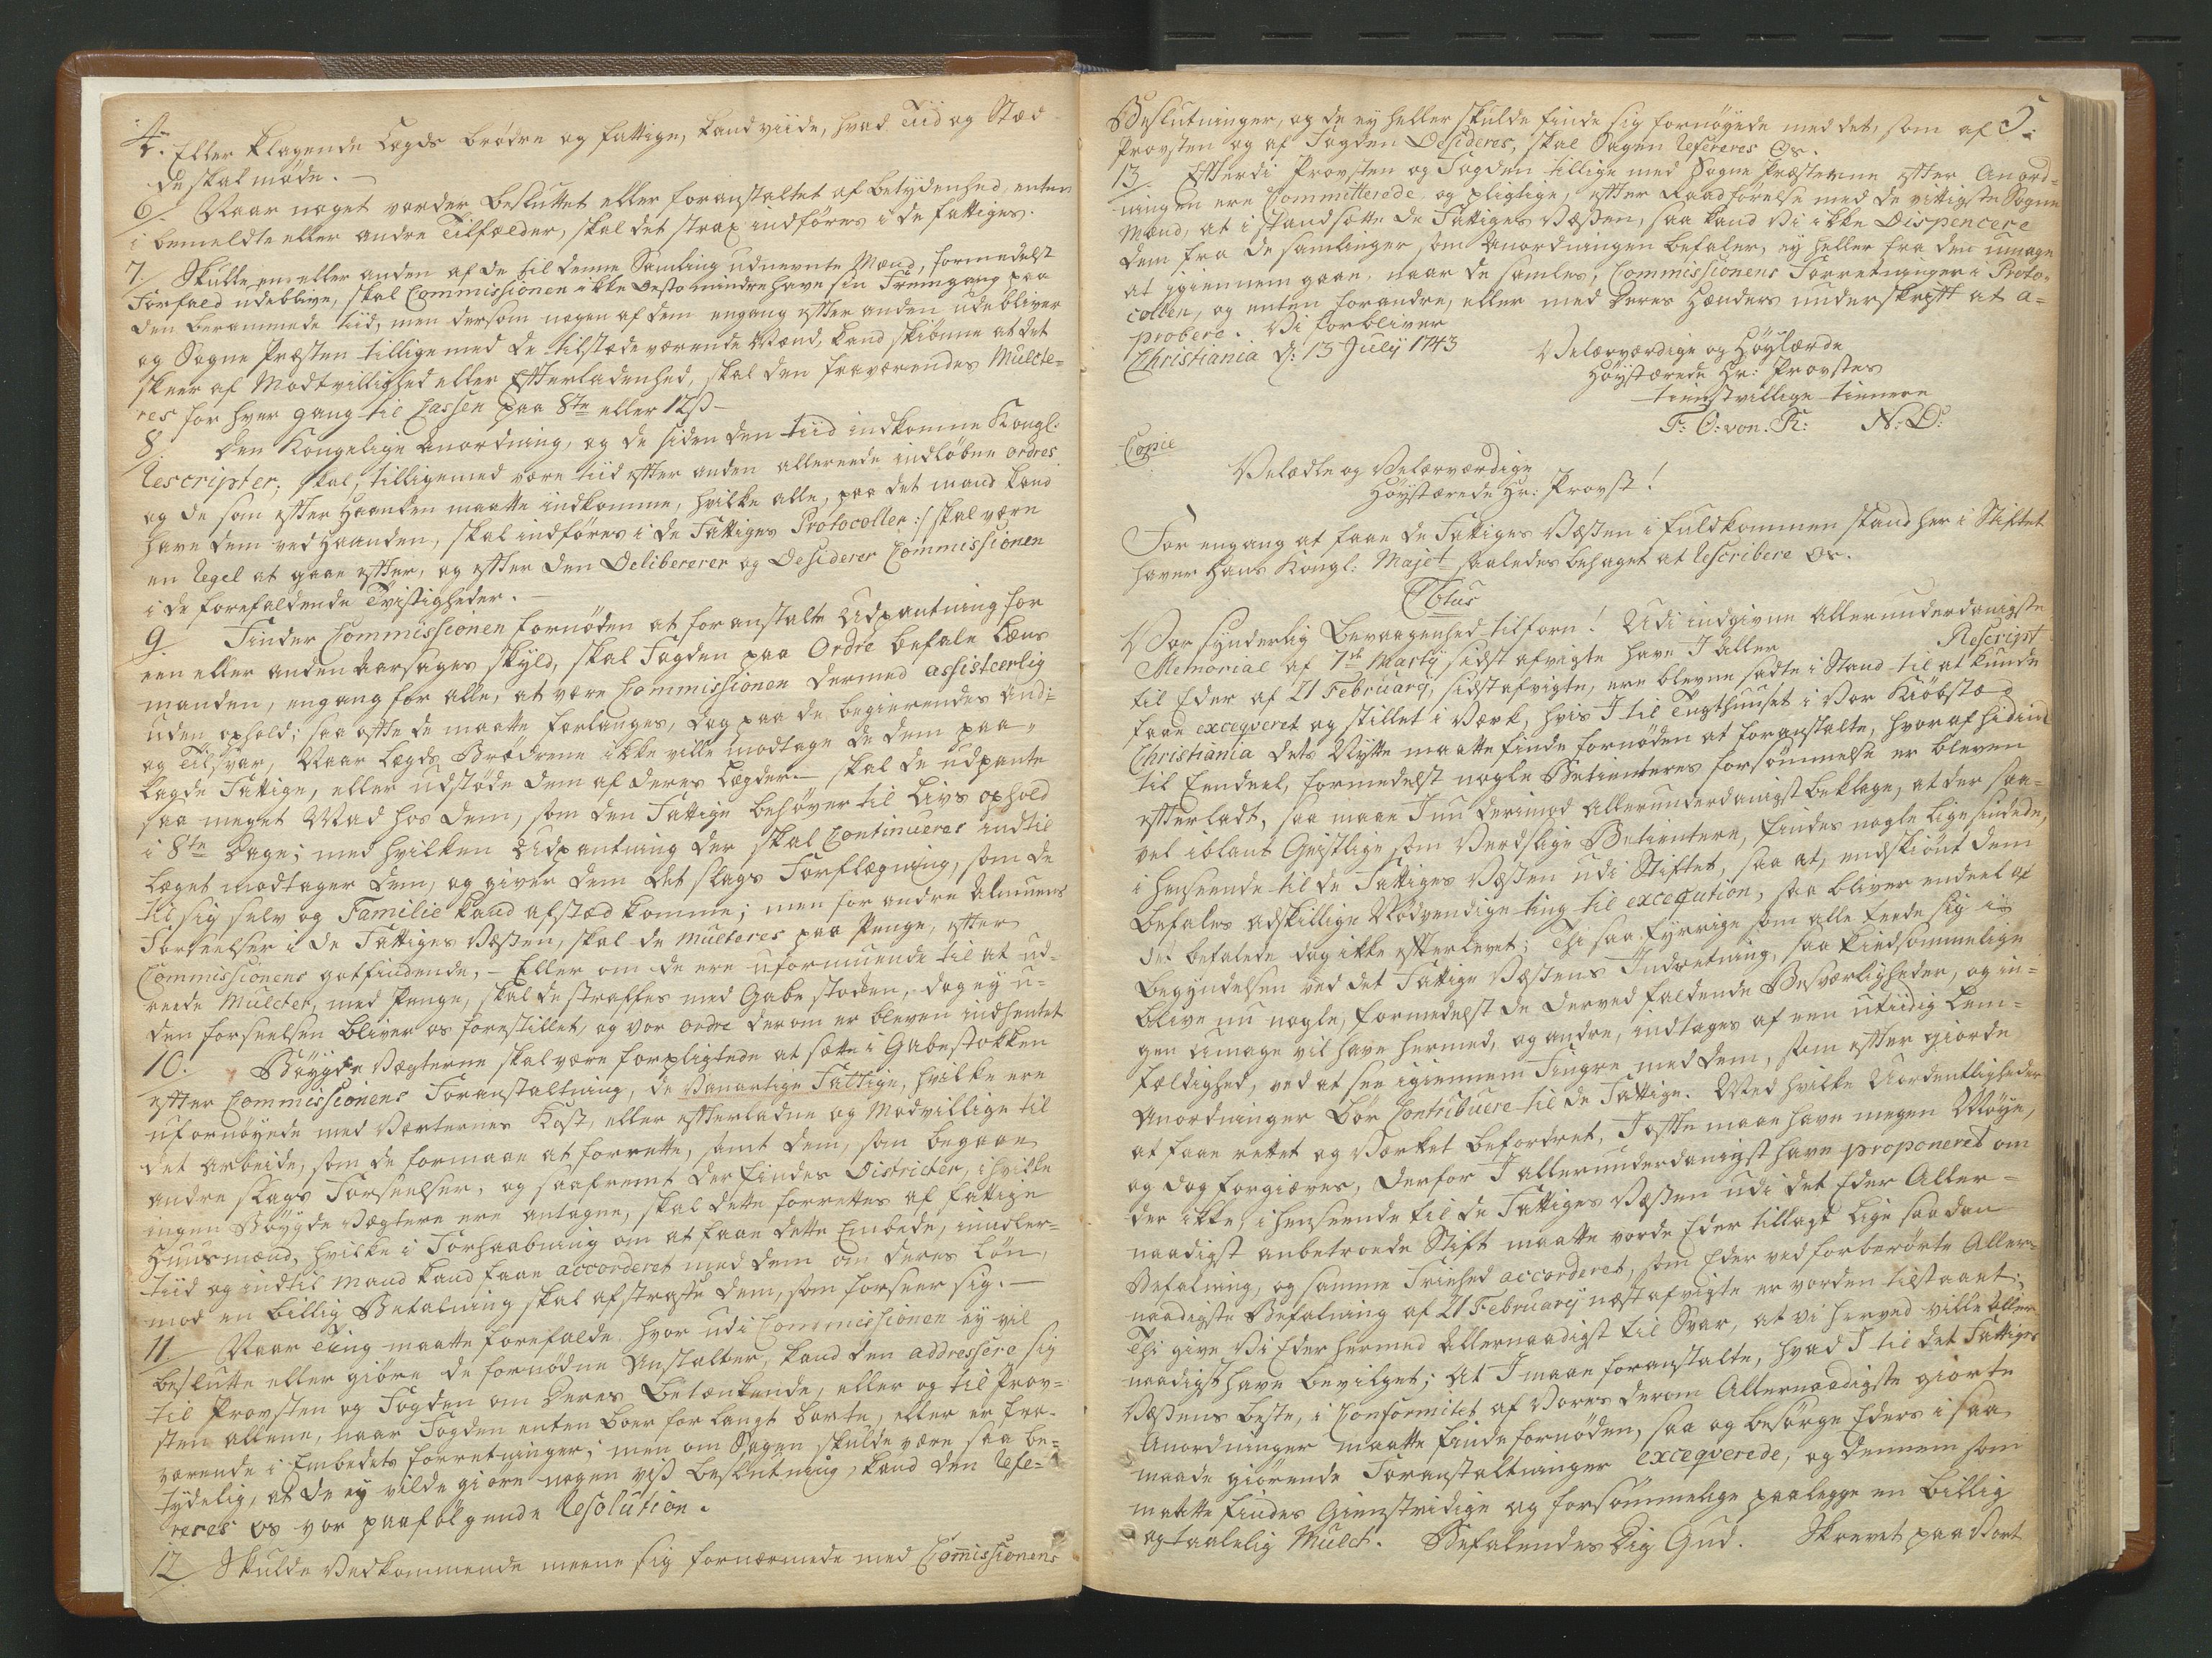 4.
Eller klagende Legds brödre og fattige, kand viide, hvad Tiid og Stæd
de skal möde. —
6. Naar noget vorder besluttet eller foranstaltet af betydenhed, enten
i bemeldte eller andre Tilfælder, skal det strax indföres i de fattiges.
7. Skulle en eller anden af de til denne Samling udnevnte Mænd, formedelst
Forfald udeblive, skal Commissionen ikke desto mindre have sin Fremgang paa
den berammede tiid, men dersom nogen af dem engang efter anden udebliver
og Sogne Præsten tillige med de tilstædeværende Mænd, kand skiönne at det
skeer af Modtvillighed eller Efterladenhed, skal den fraværendes Mulcte-
res for hver gang til Cassen paa 8te eller 12 ß —
8. Den Kongelige anordning, og de siden den tiid indkomne Kongl:
Rescripter, skal, tilligemed vore tiid efter anden allereede indlöbne ordres
og de som efter Haanden maatte indkomme, hvilke alle, paa det mand kand
have dem ved Haanden, skal indföres i de Fattiges Protocoller :/ skal være
en Regel at gaae efter, og efter den Delibererer og Desiderer Commissionen
i de forefaldende Tvistigheder. —
9. Finder Commissionen fornöden at foranstalte Udpantning for
een eller anden Aarsages skyld, skal Fogden paa Ordre befale Læns
manden, engang for alle, at være Commissionen dermed assisteerlig
uden ophold: saa ofte de maatte forlanges, dog paa de begierendes And:
og Tilsvar, Naar Legds Brödrene ikke ville modtage de dem paa-
lagde Fattige, eller udstöde dem af deres Legder — skal de udpante
saa meget Mad hos dem, som den Fattige behöver til Livs ophold
i 8te Dage; med hvilken Udpantning der skal Continueres indtil
Læget modtager dem, og giver dem det slags Forflegning, som de
til sig selv og Familie kand afsted komme; men for andre Almuens
Forseelser i de Fattiges Væsen, skal de mulcteres paa Penge, efter
Commissionens gotfindende, — Eller om de ere uformuende til at ud-
reede Mulcter, med Penge, skal de straffes med Gabestocken, dog ey u-
den forseelsen bliver os forestillet, og vor ordre derom er bleven indhentet
10. Böygde Vægterne skal være forpligtede at sætte i Gabestokken
efter Commissionens Foranstaltning, de Vanartige Fattige, hvilke ere
ufornöyede med Værternes Kost, eller efterladne og Modvillige til
det arbeide, som de formaae at forrette, samt dem, som begaae
andre slags Forseelser, og saafremt der findes Districter, i hvilke
ingen Böygde Vægtere ere antagne, skal dette forrettes af fattige
Huusmænd, hvilke i Forhaabning om at faae dette Embede, imidler-
tiid og indtil mand kand faae accorderet med dem om deres Lön,
mod en billig Betalning skal afstraffe dem, som forseer sig. —
11. Naar Ting maatte forefalde hvor udi Commissionen ey vil
beslutte eller giöre de fornödne Anstalter, kand den addressere sig
til Provsten og Fogden om deres Betænkende, eller og til Prov-
sten allene, naar Fogden enten boer for langt borte, eller er fra-
værende i Embeds forretninger; men om Sagen skulde være saa be-
tydelig, at de ey vilde giöre nogen viss beslutning, kand den Refe-
reres os vor paafölgende Resolution.
12 Skulde Vedkommende meene sig fornærmede med Commissionens
5.
Beslutninger, og de ey heller skulde finde sig fornöyede med det, som af
Provsten og af Fogden Desideres, skal Sagen Refereres Os.
13. Efterdi Provsten og Fogden tillige med Sogne Præsterne efter Anord-
ningen ere Committerede og pligtige, efter Raadförelse med de vittigste Sogne
Mænd, at i standsætte de Fattiges Væsen, saa kand Vi ikke Dispencere
dem fra de samlinger som Anordningen befaler, ey heller fra den umage
at igiennem gaae, naar de samles, Commissionens Forretninger i Proto-
collen, og enten forandre, eller med deres Hænders underskrift at a-
probere. Vi forbliver
Christiania d: 13 July 1743
Velærværdige og Höylærde
Höystærede Hr: Provstes
tienstvillige tienere
F: O: von. K: N: D:
Copie
Velædle og Velærværdige
Höystærede Hr: Provst!
For engang at faae de Fattiges Væsen i fuldkommen stand her i Stiftet
haver Hans Kongl: Majet saaledes behaget at Rescribere Os.
Vor synderlig Bevaagenhed tilforn! Udi indgivne Allerunderdanigste
Memorial af 7de Marty sidst afvigte have I aller Rescript
til Eder af 21 February, sidst afvigte, ere blevne sadte i Stand til at kunde
faae exceqveret og stillet i Værk, hvis I til Tugthuuset i Vor Kiöbstæd
Christiania dets Nytte maatte finde fornöden at foranstalte, hvoraf hidind
til Eendeel, formedelst nogle Betienteres forsömmelse er bleven
efterladt, saa maae I nu derimod Allerunderdanigst beklage, at der saa-
vel iblant Geistlige som Verdslige Betientere, findes nogle ligesindede,
i henseende til de Fattiges Væsen udi Stiftet, saa at, endskiönt dem
befales adskillige Nödvendige ting til excecution, saa bliver endeel af
det befalede dog ikke efterlevet; Thi saa fyrrige som alle teede sig i
begyndelsen ved det Fattige Væsens Indretning, saa kiedsommelige
blive nu nogle, formedelst de derved faldende Besværligheder, og in-
gen Umage vil have hermed, og andre, indtages af een utiidig Lem-
fældighed, ved at see igiennem Fingre med dem, som efter giorde
Anordninger bör Contribuere til de Fattige. Med hvilke Uordentligheder
at faae rettet og Værket befordret, I ofte maae have megen Möye,
og dog forgiæves, Derfor I allerunderdanigst have proponeret om
der ikke i henseende til de Fattiges Væsen udi det Eder Aller-
naadigst anbetroede Stift maatte vorde Eder tillagt lige saadan
Befalning, og samme Friehed accorderet, som Eder ved forberörte Aller-
naadigste Befalning af 21 February næst afvigte er vorden tilstaaet:,
Thi give Vi Eder hermed Allernaadigst til Svar, at vi herved ville Aller
naadigst have bevilget; At I maae foranstalte, hvad I til det Fattiges
Væsens beste, i Conformitet af Vores derom Allernaadigste giorte
Anordninger maatte finde fornöden, saa og besörge Eders i saa
maade giörende Foranstaltninger exceqverede, og dennem som
maatte findes Gienstridige og forsömmelige paalegge en billig
og taalelig Mulct. Befalendes Dig Gud. Skrevet paa Vort